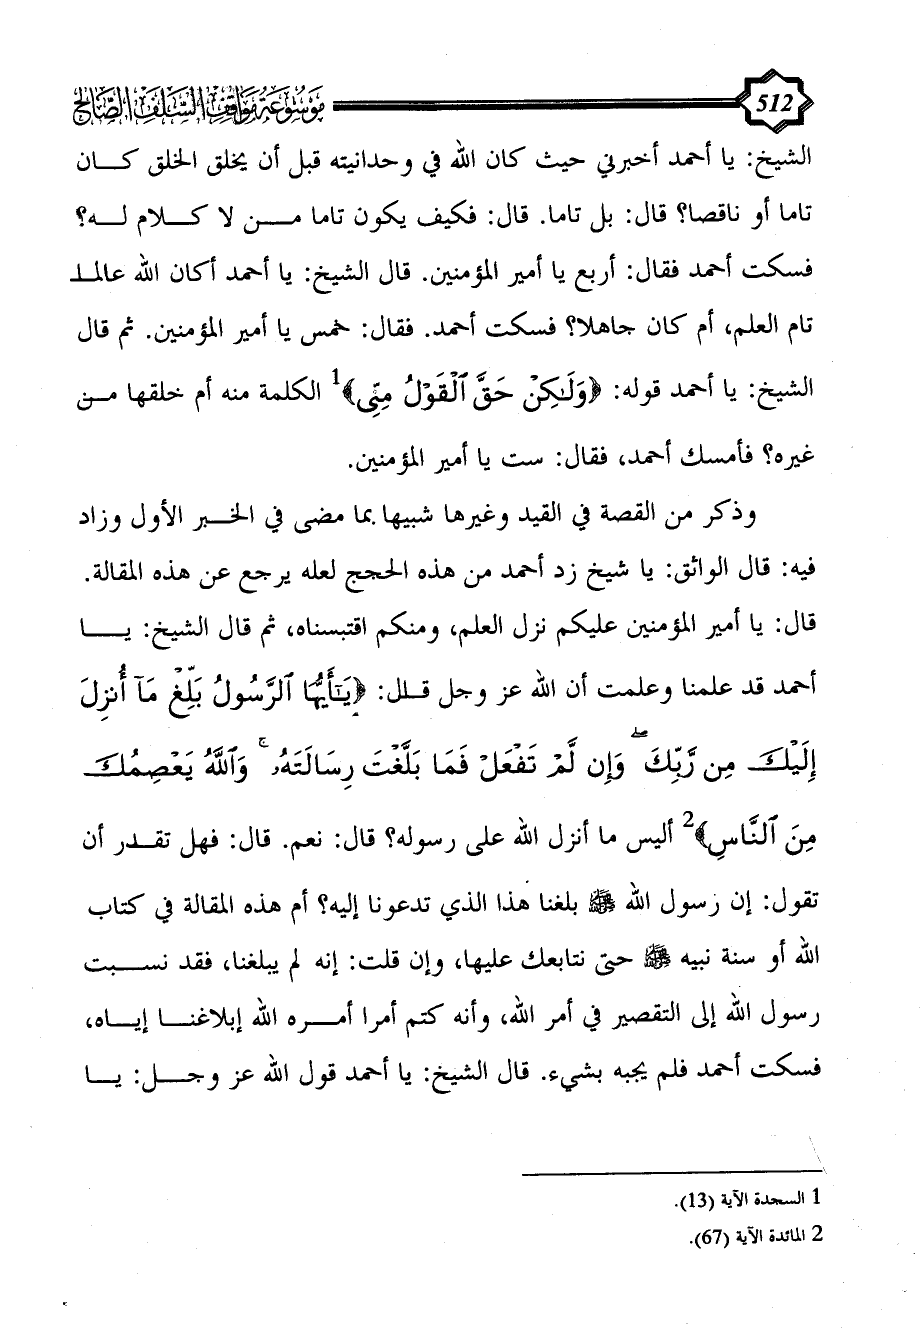 512
موسوعة مواقف السلف الصالح
الشيخ: يا أحمد أخبرني حيث كان الله في وحدانيته قبل أن يخلق الخلق كــان
تاما أو ناقصا؟ قال: بل تاما. قال: فكيف يكون تاما مــن لا كــلام لــه؟
فسكت أحمد فقال: أربع يا أمير المؤمنين. قال الشيخ: يا أحمد أكان الله عالمـا
تام العلم، أم كان جاهلا؟ فسكت أحمد. فقال: خمس يا أمير المؤمنين. ثم قال
الشيخ: يا أحمد قوله: ﴿وَلَٰكِنْ حَقَّ ٱلْقَوْلُ مِنِّى﴾1 الكلمة منه أم خلقها مـن
غيره؟ فأمسك أحمد، فقال: ست يا أمير المؤمنين.
وذكر من القصة في القيد وغيرها شبيها بما مضى في الخـبر الأول وزاد
فيه: قال الواثق: يا شيخ زد أحمد من هذه الحجج لعله يرجع عن هذه المقالة.
قال: يا أمير المؤمنين عليكم نزل العلم، ومنكم اقتبسناه، ثم قال الشيخ: يــا
أحمد قد علمنا وعلمت أن الله عز وجل قـال: ﴿يَٰٓأَيُّهَا ٱلرَّسُولُ بَلِّغْ مَآ أُنزِلَ
إِلَيْكَ مِن رَّبِّكَ ۖ وَإِن لَّمْ تَفْعَلْ فَمَا بَلَّغْتَ رِسَالَتَهُۥ ۚ وَٱللَّهُ يَعْصِمُكَ
مِنَ ٱلنَّاسِ﴾2 أليس ما أنزل الله على رسوله؟ قال: نعم. قال: فهل تقـدر أن
تقول: إن رسول الله ﷺ بلغنا هذا الذي تدعونا إليه؟ أم هذه المقالة في كتاب
الله أو سنة نبيه ﷺ حتى نتابعك عليها، وإن قلت: إنه لم يبلغنا، فقد نسـبت
رسول الله إلى التقصير في أمر الله، وأنه كتم أمرا أمـره الله إبلاغنـا إيـاه،
فسكت أحمد فلم يجبه بشيء. قال الشيخ: يا أحمد قول الله عز وجـل: يـا
1 السجدة الآية (13).
2 المائدة الآية (67).